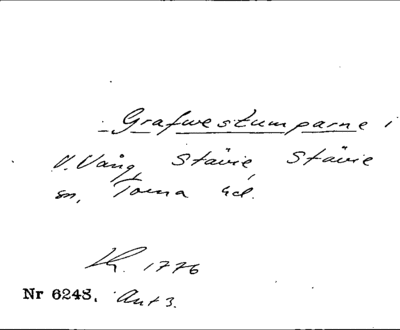 Grafwestumparne i
V. Vång, Stävie, Stävie
sn, Torna hd.
Lh. 1776
Nr 6248. Ant 3.